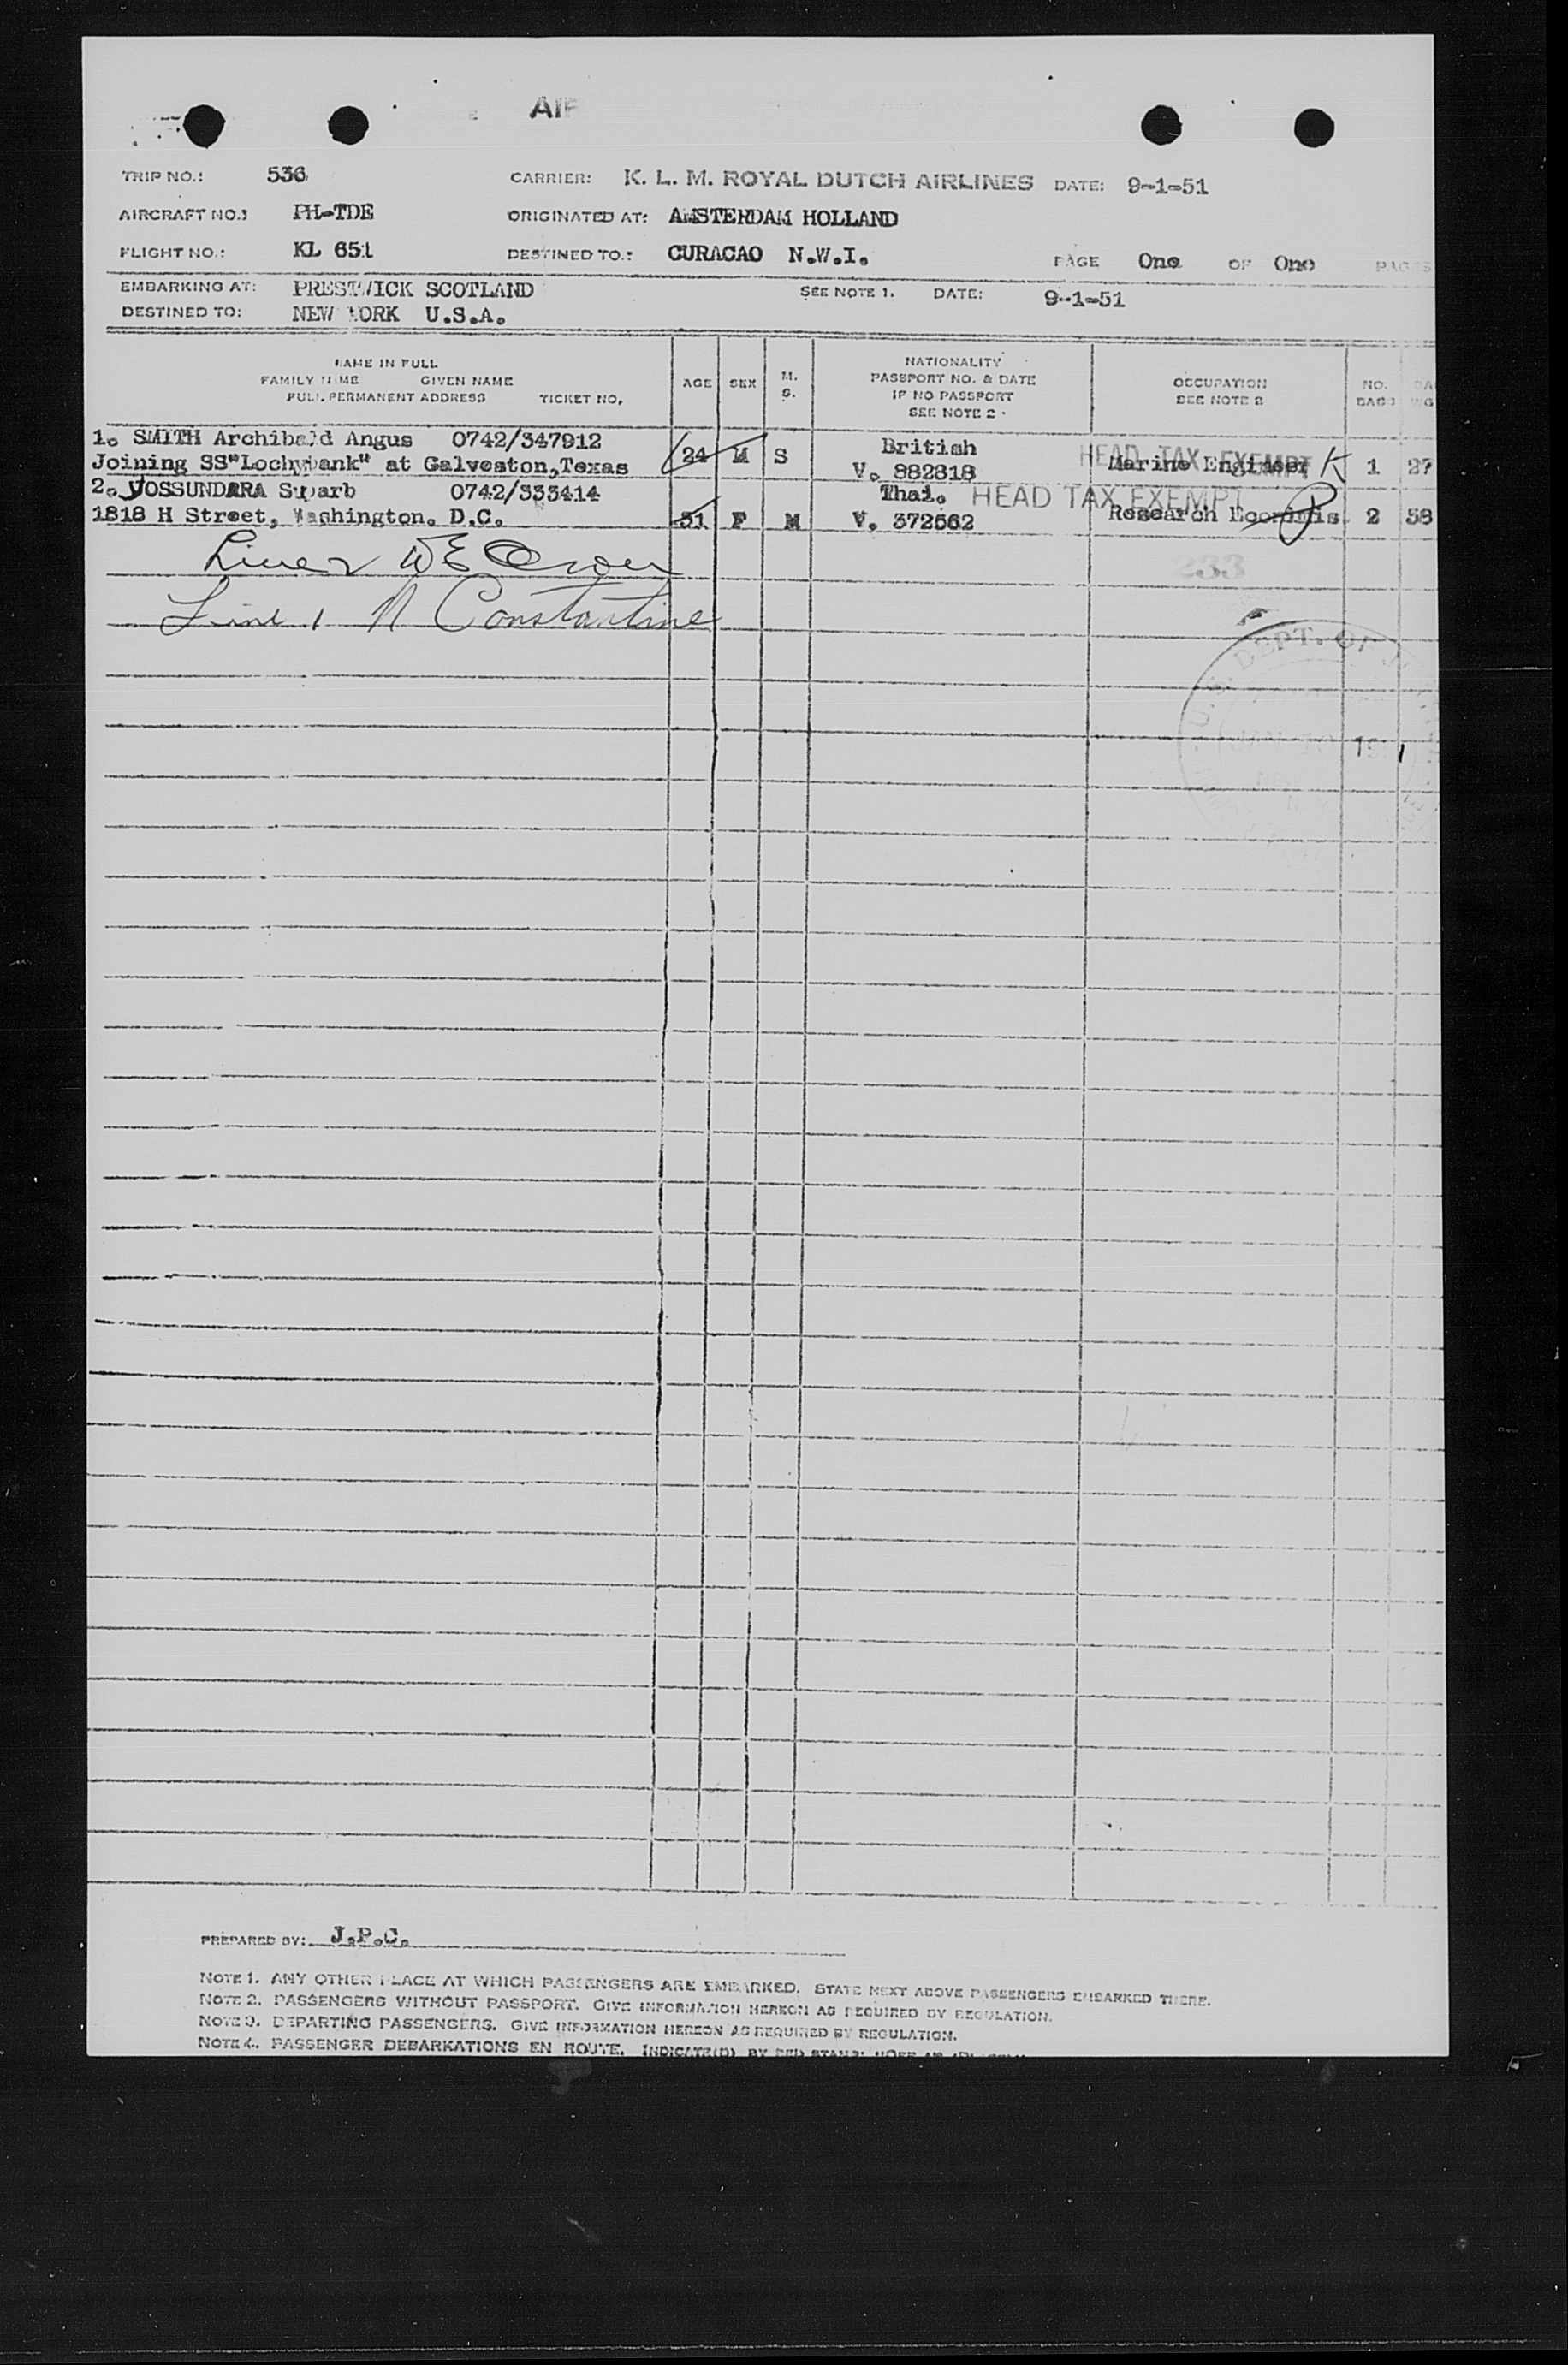 AIR
TRIP NO.: 536 CARRIER: K. L. M. ROYAL DUTCH AIRLINES DATE: 9-1-51
AIRCRAFT NO.: PH-TDE ORIGINATED AT: AMSTERDAM HOLLAND
FLIGHT NO.: KL 651 DESTINED TO.: CURACAO N.W.I. PAGE One OF One PAGES
EMBARKING AT: PRESTWICK SCOTLAND SEE NOTE 1. DATE: 9-1-51
DESTINED TO: NEW YORK U.S.A.
NAME IN FULL
FAMILY NAME GIVEN NAME
FULL PERMANENT ADDRESS TICKET NO.
AGE SEX M. S.
NATIONALITY
PASSPORT NO. & DATE
IF NO PASSPORT
SEE NOTE 2
OCCUPATION
SEE NOTE 2
NO.
BAGS
1. SMITH Archibald Angus 0742/347912 British HEAD TAX EXEMPT
Joining SS"Lochybank" at Galveston,Texas 24 M S V. 882818 Marine Engineer K 1 27
2. JOSSUNDARA Suparb 0742/333414 Thai. HEAD TAX EXEMPT
1818 H Street, Washington. D.C. 31 F M V. 372562 Research Economis 2 58
Line 2 W E
Line 1 N Constantine
233
U.S. DEPT. OF
PREPARED BY: J.P.C.
NOTE 1. ANY OTHER PLACE AT WHICH PASSENGERS ARE EMBARKED. STATE NEXT ABOVE PASSENGERS EMBARKED THERE.
NOTE 2. PASSENGERS WITHOUT PASSPORT. GIVE INFORMATION HEREON AS REQUIRED BY REGULATION.
NOTE 3. DEPARTING PASSENGERS. GIVE INFORMATION HEREON AS REQUIRED BY REGULATION.
NOTE 4. PASSENGER DEBARKATIONS EN ROUTE. INDICATE(D) BY RED STAMP